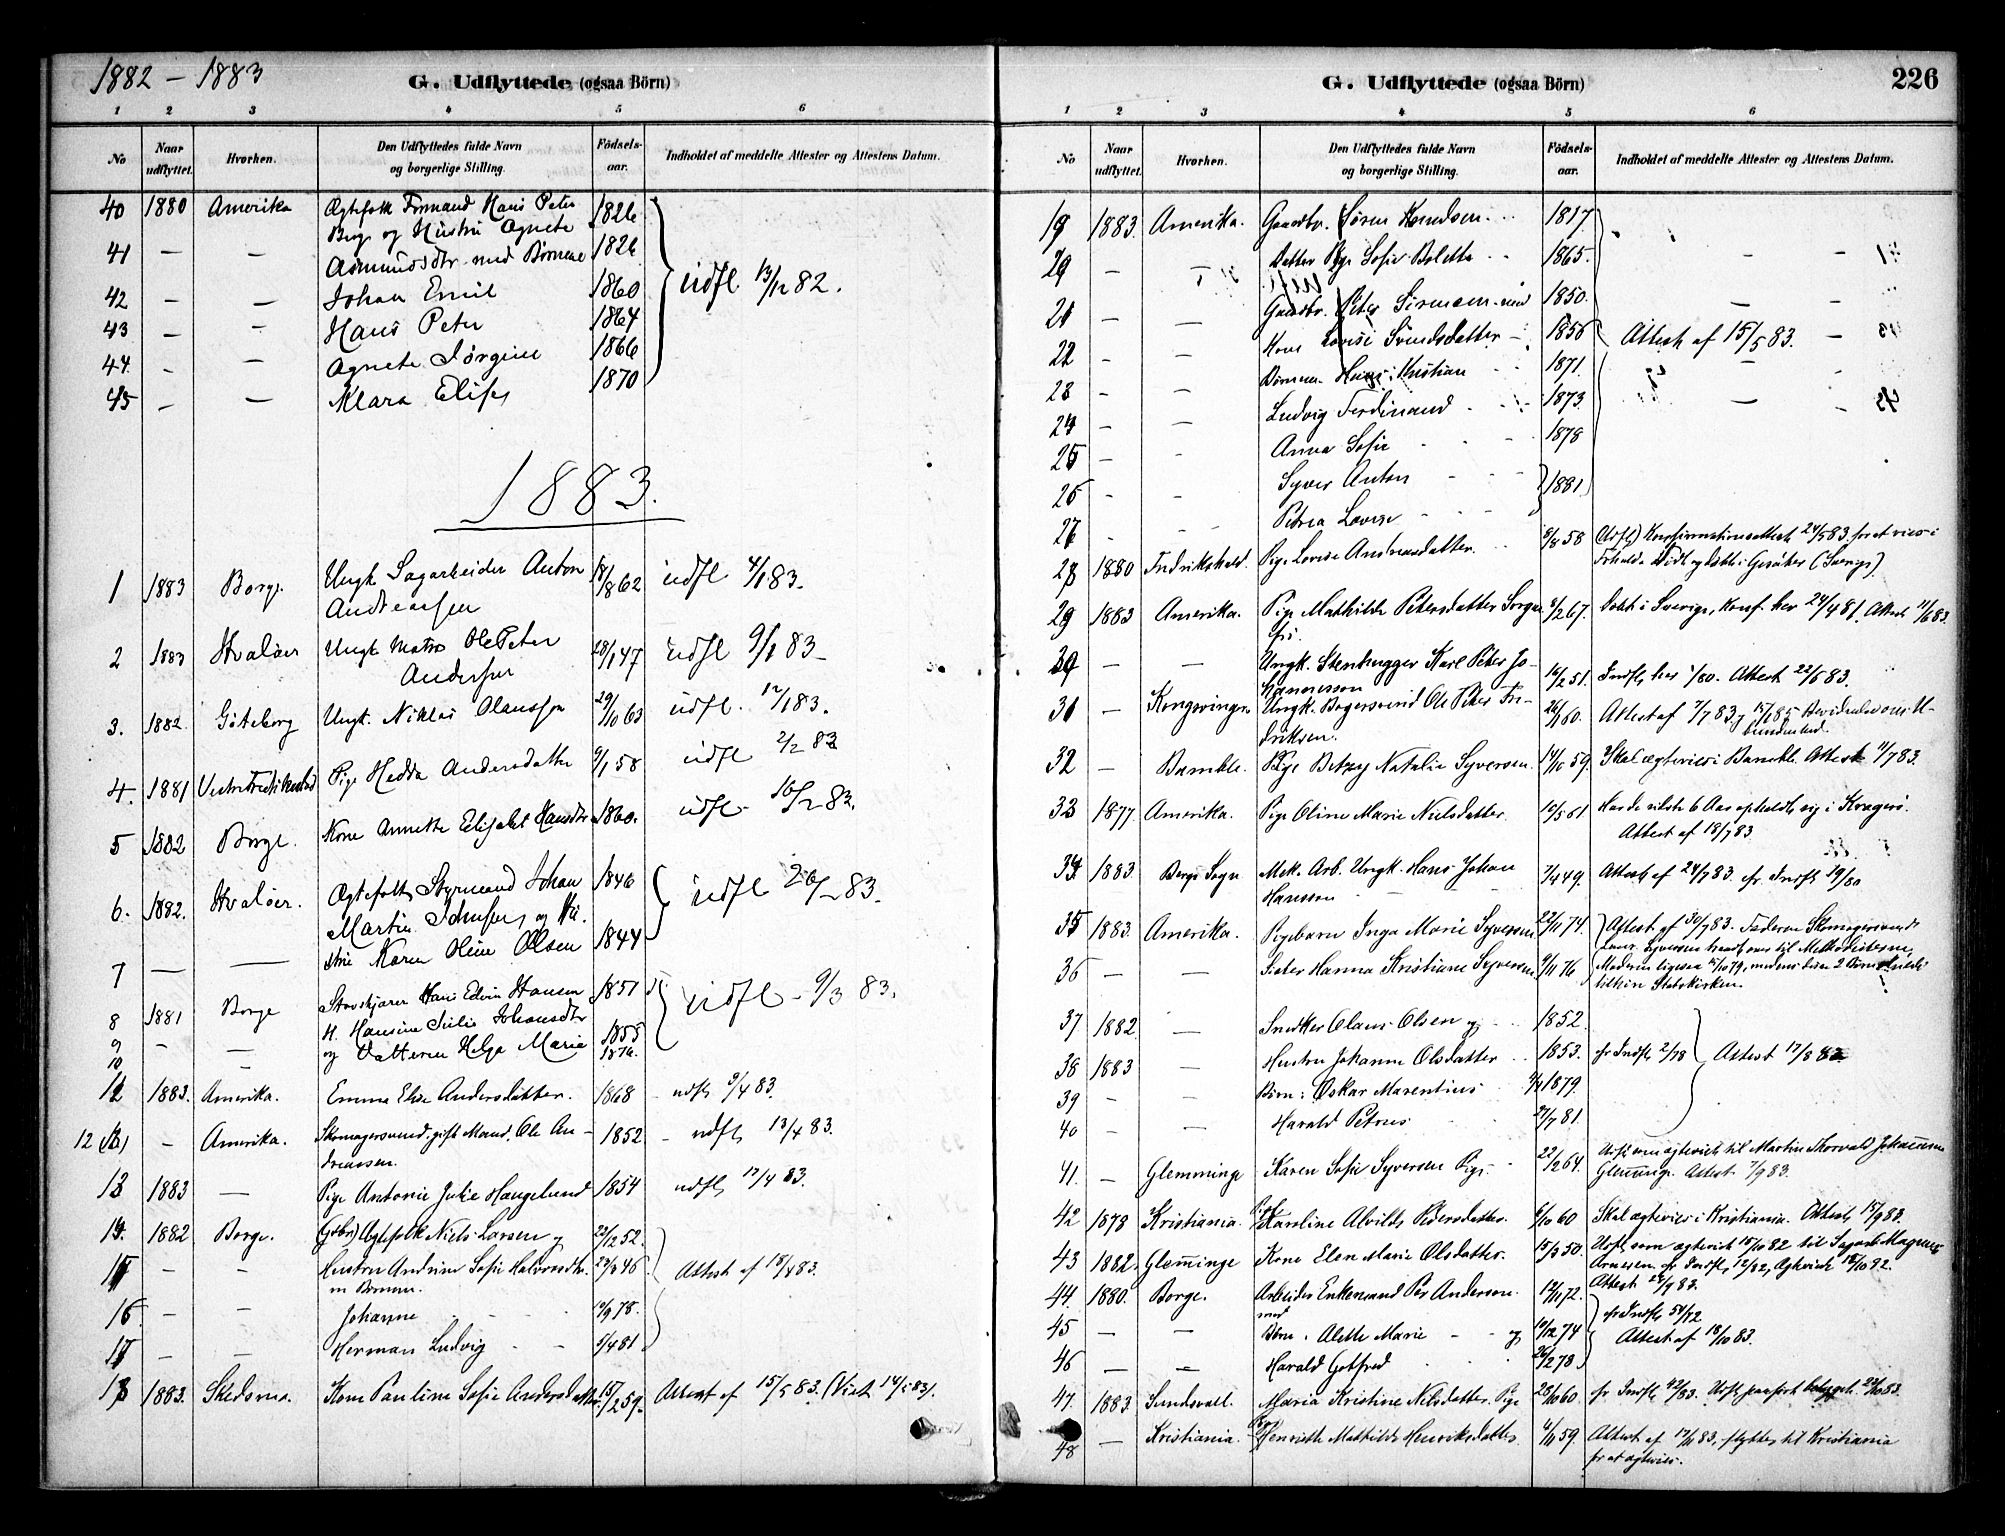 1882 – 1883
G. Udflyttede (ogsaa Börn)
1 2 3 4 5 6
No
Naar udflyttet.
Hvorhen.
Den Udflyttedes fulde Navn og borgerlige Stilling.
Födselsaar.
Indholdet af meddelte Attester og Attestens Datum.
40 1880 Amerika Ægtefolk Tømmand Hans Peter 1826
Berg og Hustru Agnete
41 — — Asmundsdtr med Børnene 1826 udfl 13/12 82.
42 — — Johan Emil 1860
43 — — Hans Peter 1864
44. — — Agnete Jørgine 1866
45 — — Klara Elise 1870
1883.
1 1883 Borge Ungk Sagarbeider Anton 18/8 62 udfl 4/1 83.
Andreassen
2 1883 Hvaløer Ungk Matros Ole Peter 28/1 47 udfl 9/1 83
Andersen
3. 1882. Göteborg Ungk. Niklas Olaussen 29/10 63 udfl. 12/1 83.
4. 1881 Vestre Fredrikstad Pige Hedda Andersdatter 9/1 58 udfl 2/2 83
5 1882 Borge. Kone Annette Elisabet Hansdtr 1860. udfl. 16/2 83.
6. 1882. Hvaløer. Ægtefolk Styrmand Johan 1846 udfl 26/2 83.
Martin Johnsen og Hu-
7 — — stru Karen Oline Olsen 1844
8 1881 Borge Stavskjærer Hans Edvin Hansen 1851 udfl – 9/3 83.
9 – — H. Hansine Julie Johansdtr 1855
10 — og Datteren Helga Maria 1876.
11 1883. Amerika. Emma Elise Andersdatter. 1868 udfl 9/4 83.
12 – Amerika. Skomagersvend, gift Mand, Ole An- 1852 – udfl, 13/4 83.
dreassen.
13 1883 — Pige Antonie Julie Haugelund 1854 udfl, 17/4 83.
14. 1882 Borge. (Gbr) Ægtefolk Niels Larsen og 22/12 52.
15 – – Hustru Andrine Sofie Halvorsdtr. 23/3 46 Attest af 18/4 83.
m Børnene.
16. – – Johanne 12/9 78.
17 – — Herman Ludvig 5/4 81
18 1883. Skedsmo. Kone Pauline Sofie Andersdatter 15/2 59. Attest af 15/5 83.
226
G. Udflyttede (ogsaa Börn)
1 2 3 4 5 6
No
Naar udflyttet.
Hvorhen.
Den Udflyttedes fulde Navn og borgerlige Stilling.
Födselsaar.
Indholdet af meddelte Attester og Attestens Datum.
19 1883. Amerika. Gaardbr. Søren Knudsen 1817
20 – – Datter Pige Sofie Bolette 1865.
21 — — Gaardbr. Peter Sørensen med 1850.
22 – — Kone Lovise Svendsdatter 1856 Attest af 15/5 83.
23 – — Børnene. Hans Kristian 1871.
24 – — Ludvig Ferdinand 1873.
25 — – Anna Sofie 1878
26 – – Syver Anton 1881
27 – – Petrea Lovise
28 1880 Fredrikshald. Pige Lovise Andreasdatter. 8/8 58 (Udfl) Konfirmationsattest 24/5 83 for at vies i
29 1883 Amerika. Pige Mathilde Petersdatter 8/2 67. Døbt i Sverige, Konf. her 24/4 81. Attest 11/6 83
30 — — Ungk. Stenhugger Karl Peter Jo- 16/2 51. Indfl, her /80. Attest 22/6 83.
hannesson
31 — Kongsvinger Ungk. Bagersvend Ole Peter Fre- 26/ 60. Attest af 7/7 83,
driksen.
32 — Bamble. Pige Betzy Natalie Syversen. 14/10 59. Skal ægtevies i Bamble. Attest 11/7 83.
33 1877 Amerika. Pige Oline Marie Nielsdatter. 10/5 61 Har de sidste 6 Aar opholdt sig i Kragerø.
Attest af 18/7 83
34 1883 Borge Sogn Mek. Arb. Ungk. Hans Johan 7/4 49. Attest af 24/7 83. cfr Indfl 19/80
Hansson
35 1883. Amerika. Pigebarn Inga Marie Syversen 22/11 74. Attest af 30/7 83. Faderen Skomagersvend
36 — — Søster Hanna Kristiane Syversen 9/11 76 Moderen ligesaa 15/10 79, medens disse 2 Børn
til hin Statskirken.
37 1882 — Snedker Olaus Olsen og 1852.
38 1883 — Hustru Johanne Olsdatter 1853. cfr Indfl 2/78 Attest 17/8 83
39 – – Børn: Oskar Marentius 1879.
40 – — Harald Petrus 27/7 81.
41. — Glemminge Karen Sofie Syversen Pige 22/2 64. Udfl, som ægteviet til Martin Thorvald Johannesen
Glemminge. Attest 7/9 83.
42 1878 Kristiania. Pige Karoline Alvilde Pedersdatter. 6/10 60 Skal ægtevies i Kristiania. Attest, 15/9 83.
43 1882. Glemminge Kone Elen Marie Olsdatter 15/3 50. Udfl, som ægteviet 15/10 82 til Sagarb. Magnus
Arnesen cfr Indfl, 12/82, Ægteviet 15/10 82.
Attest 22/9 83.
44. 1880. Borge. Arbeider Enkemand Per Anderson. 12/11 72. cfr Indfl 54/72
med
45 — — Børn: Alette Marie og 10/12 74 Attest af 18/10 83.
46 — — Harald Gotfred 26/2 78
47. 1883. Sundsvall. Maria Kristine Nilsdatter. Pige 28/10 60. cfr Indfl 42/83.
48 — Kristiania. Pige Henriette Mathilde Henriksdatter. 6/11 59. Attest af 17/11 83, flyttes til Kristiania
for at ægtevies.